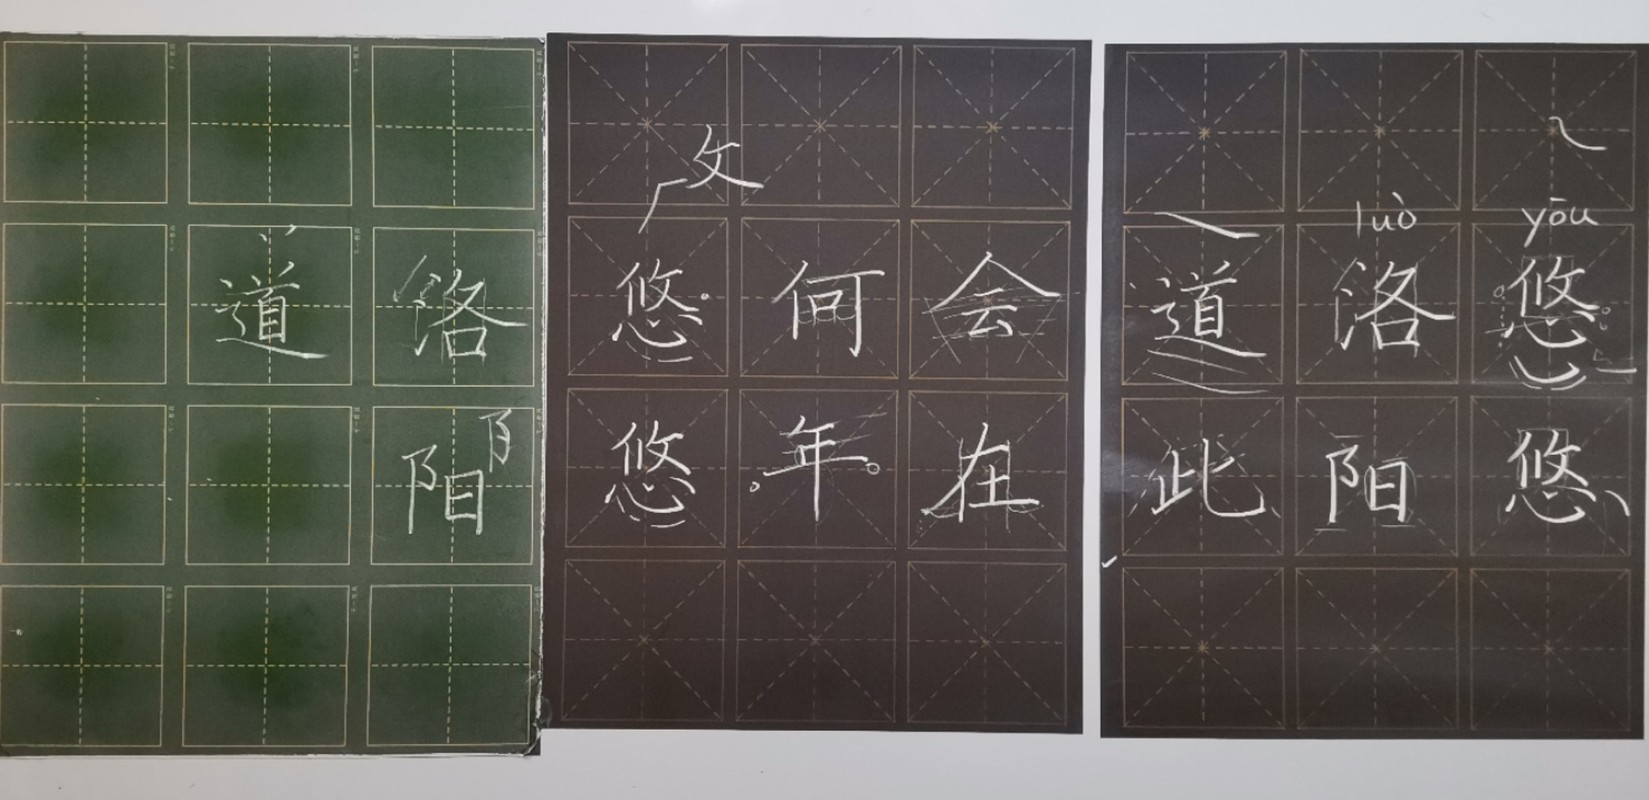 道 洛
阳
攵
悠 何 会
悠 年 在
luò yōu
道 洛 悠
此 阳 悠